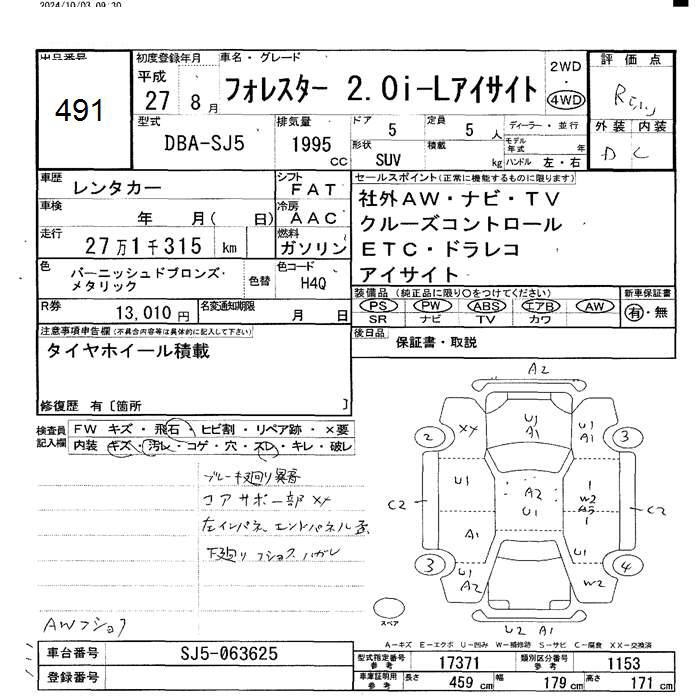 2024/10/03 09:30
出品番号
491
初度登録年月
平成
27 8月
車名・グレード
フォレスター 2.0i-Lアイサイト
2WD
・
4WD
評価点
外装 内装
D C
型式
DBA-SJ5
排気量
1995 CC
ドア
5
定員
5 人
形状
SUV
積載
kg
ディーラー・並行
モデル年式 年
ハンドル 左・右
車歴
レンタカー
シフト
FAT
車検
年 月( 日)
冷房
AAC
走行
27万1千315 km
燃料
ガソリン
色
バーニッシュドブロンズ・
メタリック
色替
色コード
H4Q
R券
13,010円
名変通知期限
月 日
セールスポイント(正常に機能するものに限ります)
社外AW・ナビ・TV
クルーズコントロール
ETC・ドラレコ
アイサイト
装備品(純正品に限り○をつけてください)
PS PW ABS エアB AW
SR ナビ TV カワ
新車保証書
有・無
後日品
保証書・取説
注意事項申告欄(不具合内容等は具体的に記入して下さい)
タイヤホイール積載
修復歴 有〔箇所 〕
検査員
記入欄
FW キズ・飛石・ヒビ割・リペア跡・×要
内装 キズ・汚レ・コゲ・穴・スレ・キレ・破レ
ブレーキ廻り異音
コアサポート部XX
左インパネ エンドパネル
下廻り フショク ハガレ
AWフショク
A2
2
XX
U1
A1
U1
A1
3
U1
A2
U1
1
W2
C2
C2
A1
3
U1
A2
U1
4
W2
U2 A1
スペア
A-キズ E-エクボ U-凹み W-補修跡 S-サビ C-腐食 XX-交換済
車台番号
SJ5-063625
登録番号
型式指定番号
参考
17371
類別区分番号
参考
1153
車庫証明用
参考
長さ 459 cm 幅 179 cm 高さ 171 cm